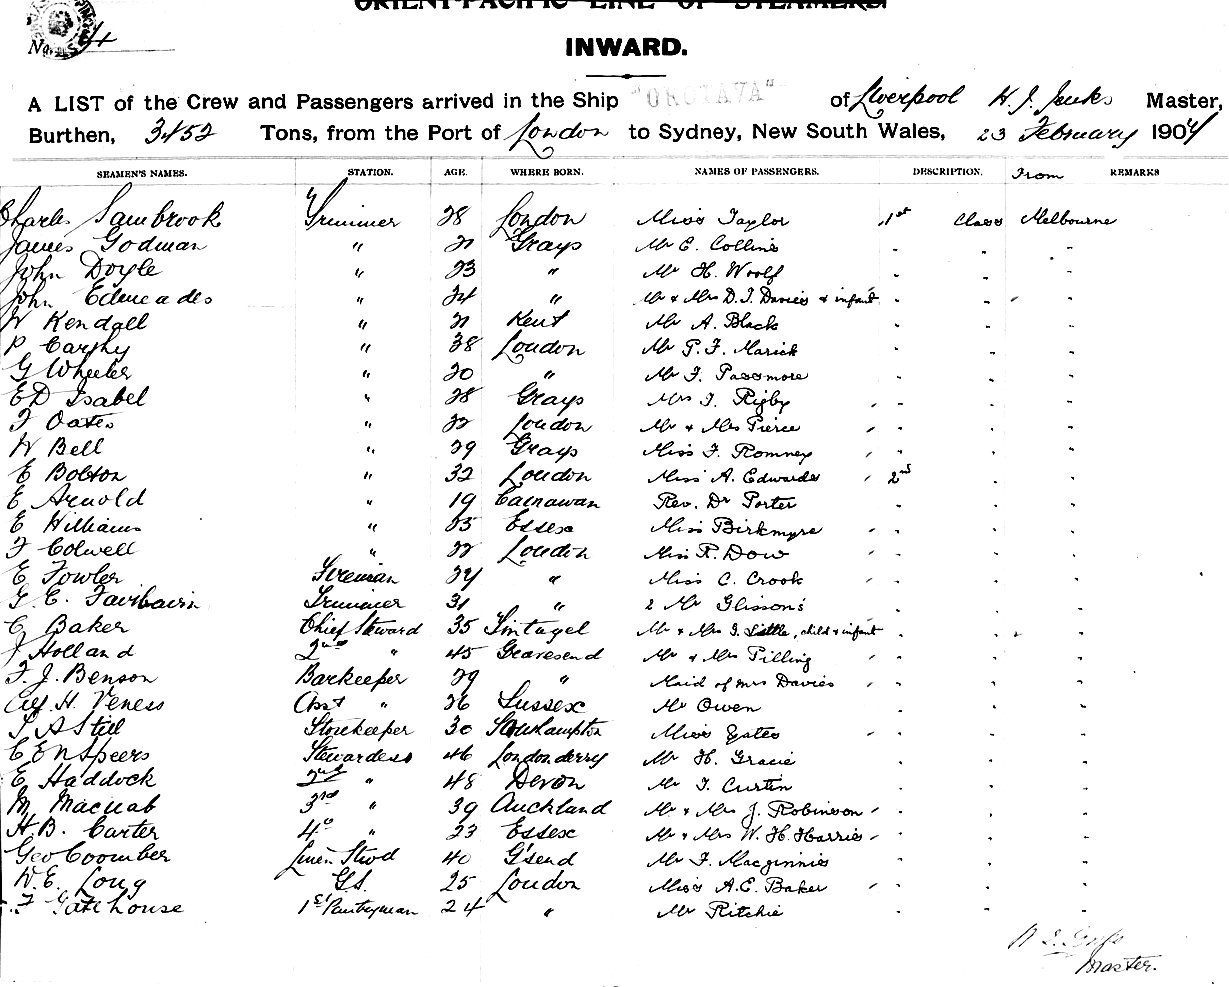 ORIENT-PACIFIC LINE OF STEAMERS.
No. 4
INWARD.
A LIST of the Crew and Passengers arrived in the Ship "OROTAVA" of Liverpool H. J. Jenks Master,
Burthen, 3452 Tons, from the Port of London to Sydney, New South Wales, 23 February 1904
SEAMEN'S NAMES. STATION. AGE. WHERE BORN. NAMES OF PASSENGERS. DESCRIPTION. From REMARKS
Charles Sambrook Trimmer 28 London Miss Taylor 1st Class Melbourne
James Godman " 21 Grays Mr E. Collins
John Doyle " 23 " Mr H. Woolf
John Edmeades " 24 " Mr & Mrs D. J. Davies & infant
W Kendall " 21 Kent Mr A. Black
P Carthy " 38 London Mr P. F. Marick
G Wheeler " 20 " Mr F. Passmore
E D Isabel " 28 Grays Mrs J. Rigby
F Oates " 22 London Mr & Mrs Pierce
W Bell " 29 Grays Miss F. Romney
E Bobton " 32 London Miss A. Edwards 2nd
E Arnold " 19 Carnawan Rev. Dr Porter
E Williams " 25 Essex Miss Birkmyre
F Colwell " 22 London Miss R. Dow
E Fowler Fireman 24 " Miss C. Crook
G. E. Fairbairn Trimmer 31 " 2 Mr Glissons
C Baker Chief Steward 35 Tintagel Mr & Mrs J. Little, child & infant
J Holland 2nd " 45 Gravesend Mr & Mrs Pilling
F. J. Benson Barkeeper 29 " Maid of Mrs Davies
Alf. H. Veness Asst " 26 Sussex Mr Owen
S A Still Storekeeper 30 Southampton Miss Yates
E E N Speers Stewardess 46 Londonderry Mr H. Gracie
E Haddock 2nd " 48 Devon Mr J. Curtin
M Macnab 3rd " 39 Auckland Mr & Mrs J. Robinson
H. B. Carter 4o " 23 Essex Mr & Mrs W. H. Harris
Geo Coomber Linen Stwd 40 G'send Mr F. Macginnis
W. E. Long G.S. 25 London Miss A. E. Baker
F Gatehouse 1st Pantryman 24 " Mr Ritchie
Master.